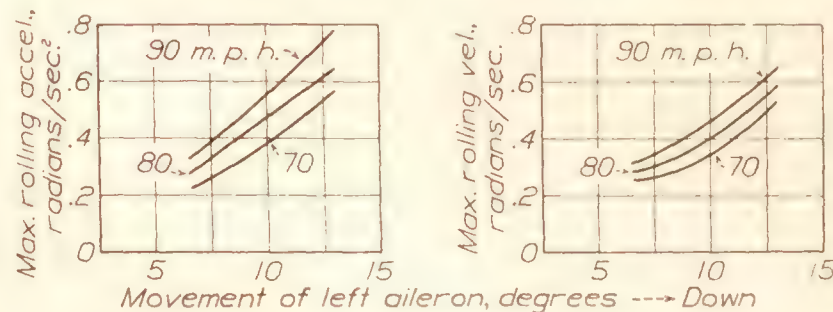 Max. rolling accel.,
radians/sec.²
.8
.6
.4
.2
0
90 m. p. h.
80
70
5
10
15
Max. rolling vel.,
radians/sec.
.8
.6
.4
.2
0
90 m. p. h.
80
70
5
10
15
Movement of left aileron, degrees ---→ Down